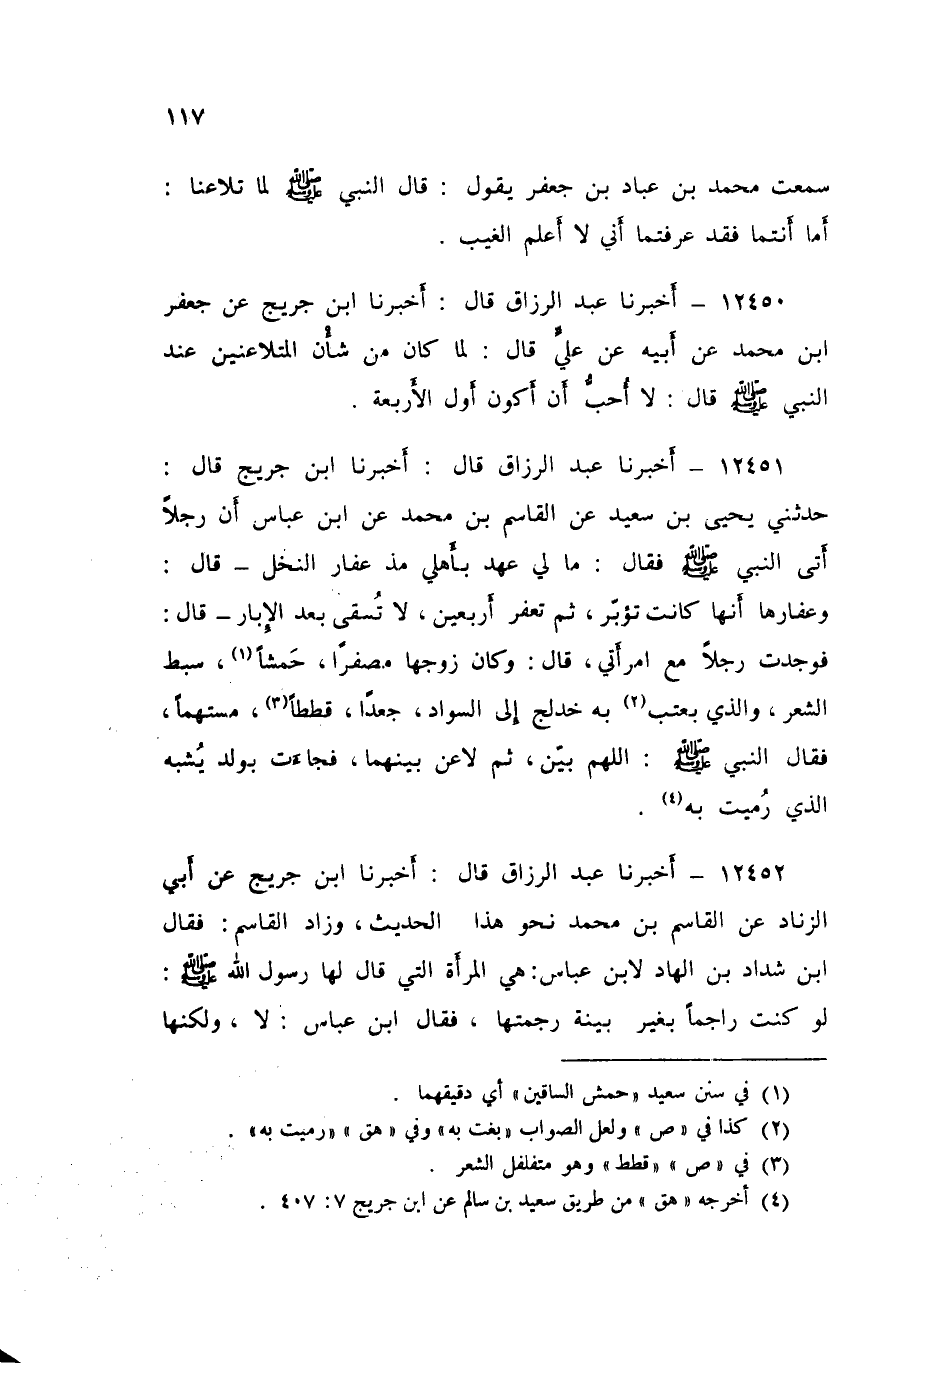 ١١٧
سمعت محمد بن عباد بن جعفر يقول : قال النبي ﷺ لما تلاعنا :
أما أنتما فقد عرفتما أني لا أعلم الغيب .
١٢٤٥٠ – أخبرنا عبد الرزاق قال : أخبرنا ابن جريج عن جعفر
ابن محمد عن أبيه عن عليٍّ قال : لما كان من شأْن المتلاعنين عند
النبي ﷺ قال : لا أُحبُّ أن أكون أول الأَربعة .
١٢٤٥١ – أخبرنا عبد الرزاق قال : أخبرنا ابن جريج قال :
حدثني يحيى بن سعيد عن القاسم بن محمد عن ابن عباس أن رجلاً
أتى النبي ﷺ فقال : ما لي عهد بأَهلي مذ عفار النخل – قال :
وعفارها أنها كانت تؤبّر ، ثم تعفر أربعين ، لا تُسقى بعد الإِبار – قال :
فوجدت رجلاً مع امرأتي ، قال : وكان زوجها مصفرًا ، حَمشاً(١) ، سبط
الشعر ، والذي بعتب(٢) به خدلج إلى السواد ، جعدًا ، قططاً(٣) ، مستهماً ،
فقال النبي ﷺ : اللهم بيّن ، ثم لاعن بينهما ، فجاءت بولد يُشبه
الذي رُميت به(٤) .
١٢٤٥٢ – أخبرنا عبد الرزاق قال : أخبرنا ابن جريج عن أبي
الزناد عن القاسم بن محمد نحو هذا الحديث ، وزاد القاسم : فقال
ابن شداد بن الهاد لابن عباس : هي المرأة التي قال لها رسول الله ﷺ :
لو كنت راجماً بغير بينة رجمتها ، فقال ابن عباس : لا ، ولكنها
(١) في سنن سعيد «حمش الساقين» أي دقيقهما .
(٢) كذا في «ص» ولعل الصواب «بغت به» وفي «هق» «رميت به» .
(٣) في «ص» «قطط» وهو متفلفل الشعر .
(٤) أخرجه «هق» من طريق سعيد بن سالم عن ابن جريج ٧: ٤٠٧ .